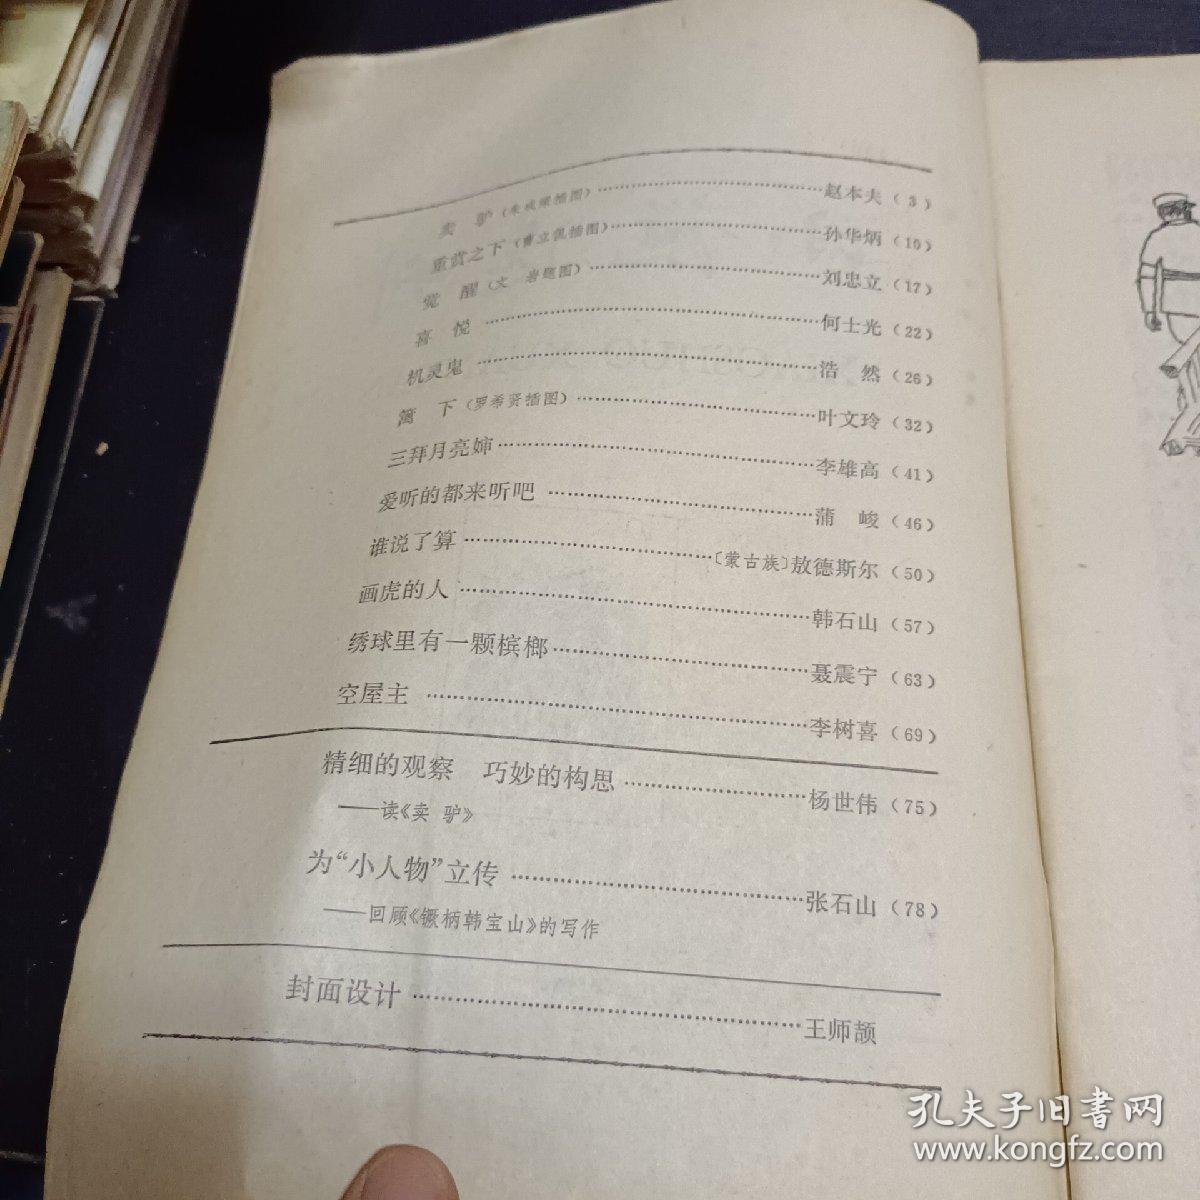 卖 驴(朱成梁插图)…………赵本夫(3)
重赏之下(曹立伟插图)…………孙华炳(10)
觉 醒(文 岩题图)…………刘忠立(17)
喜 悦…………何士光(22)
机灵鬼…………浩 然(26)
篱 下(罗希贤插图)…………叶文玲(32)
三拜月亮婶…………李雄高(41)
爱听的都来听吧…………蒲 峻(46)
谁说了算…………〔蒙古族〕敖德斯尔(50)
画虎的人…………韩石山(57)
绣球里有一颗槟榔…………聂震宁(63)
空屋主…………李树喜(69)
精细的观察 巧妙的构思…………杨世伟(75)
——读《卖 驴》
为“小人物”立传…………张石山(78)
——回顾《镢柄韩宝山》的写作
封面设计…………王师颉
孔夫子旧书网
www.kongfz.com